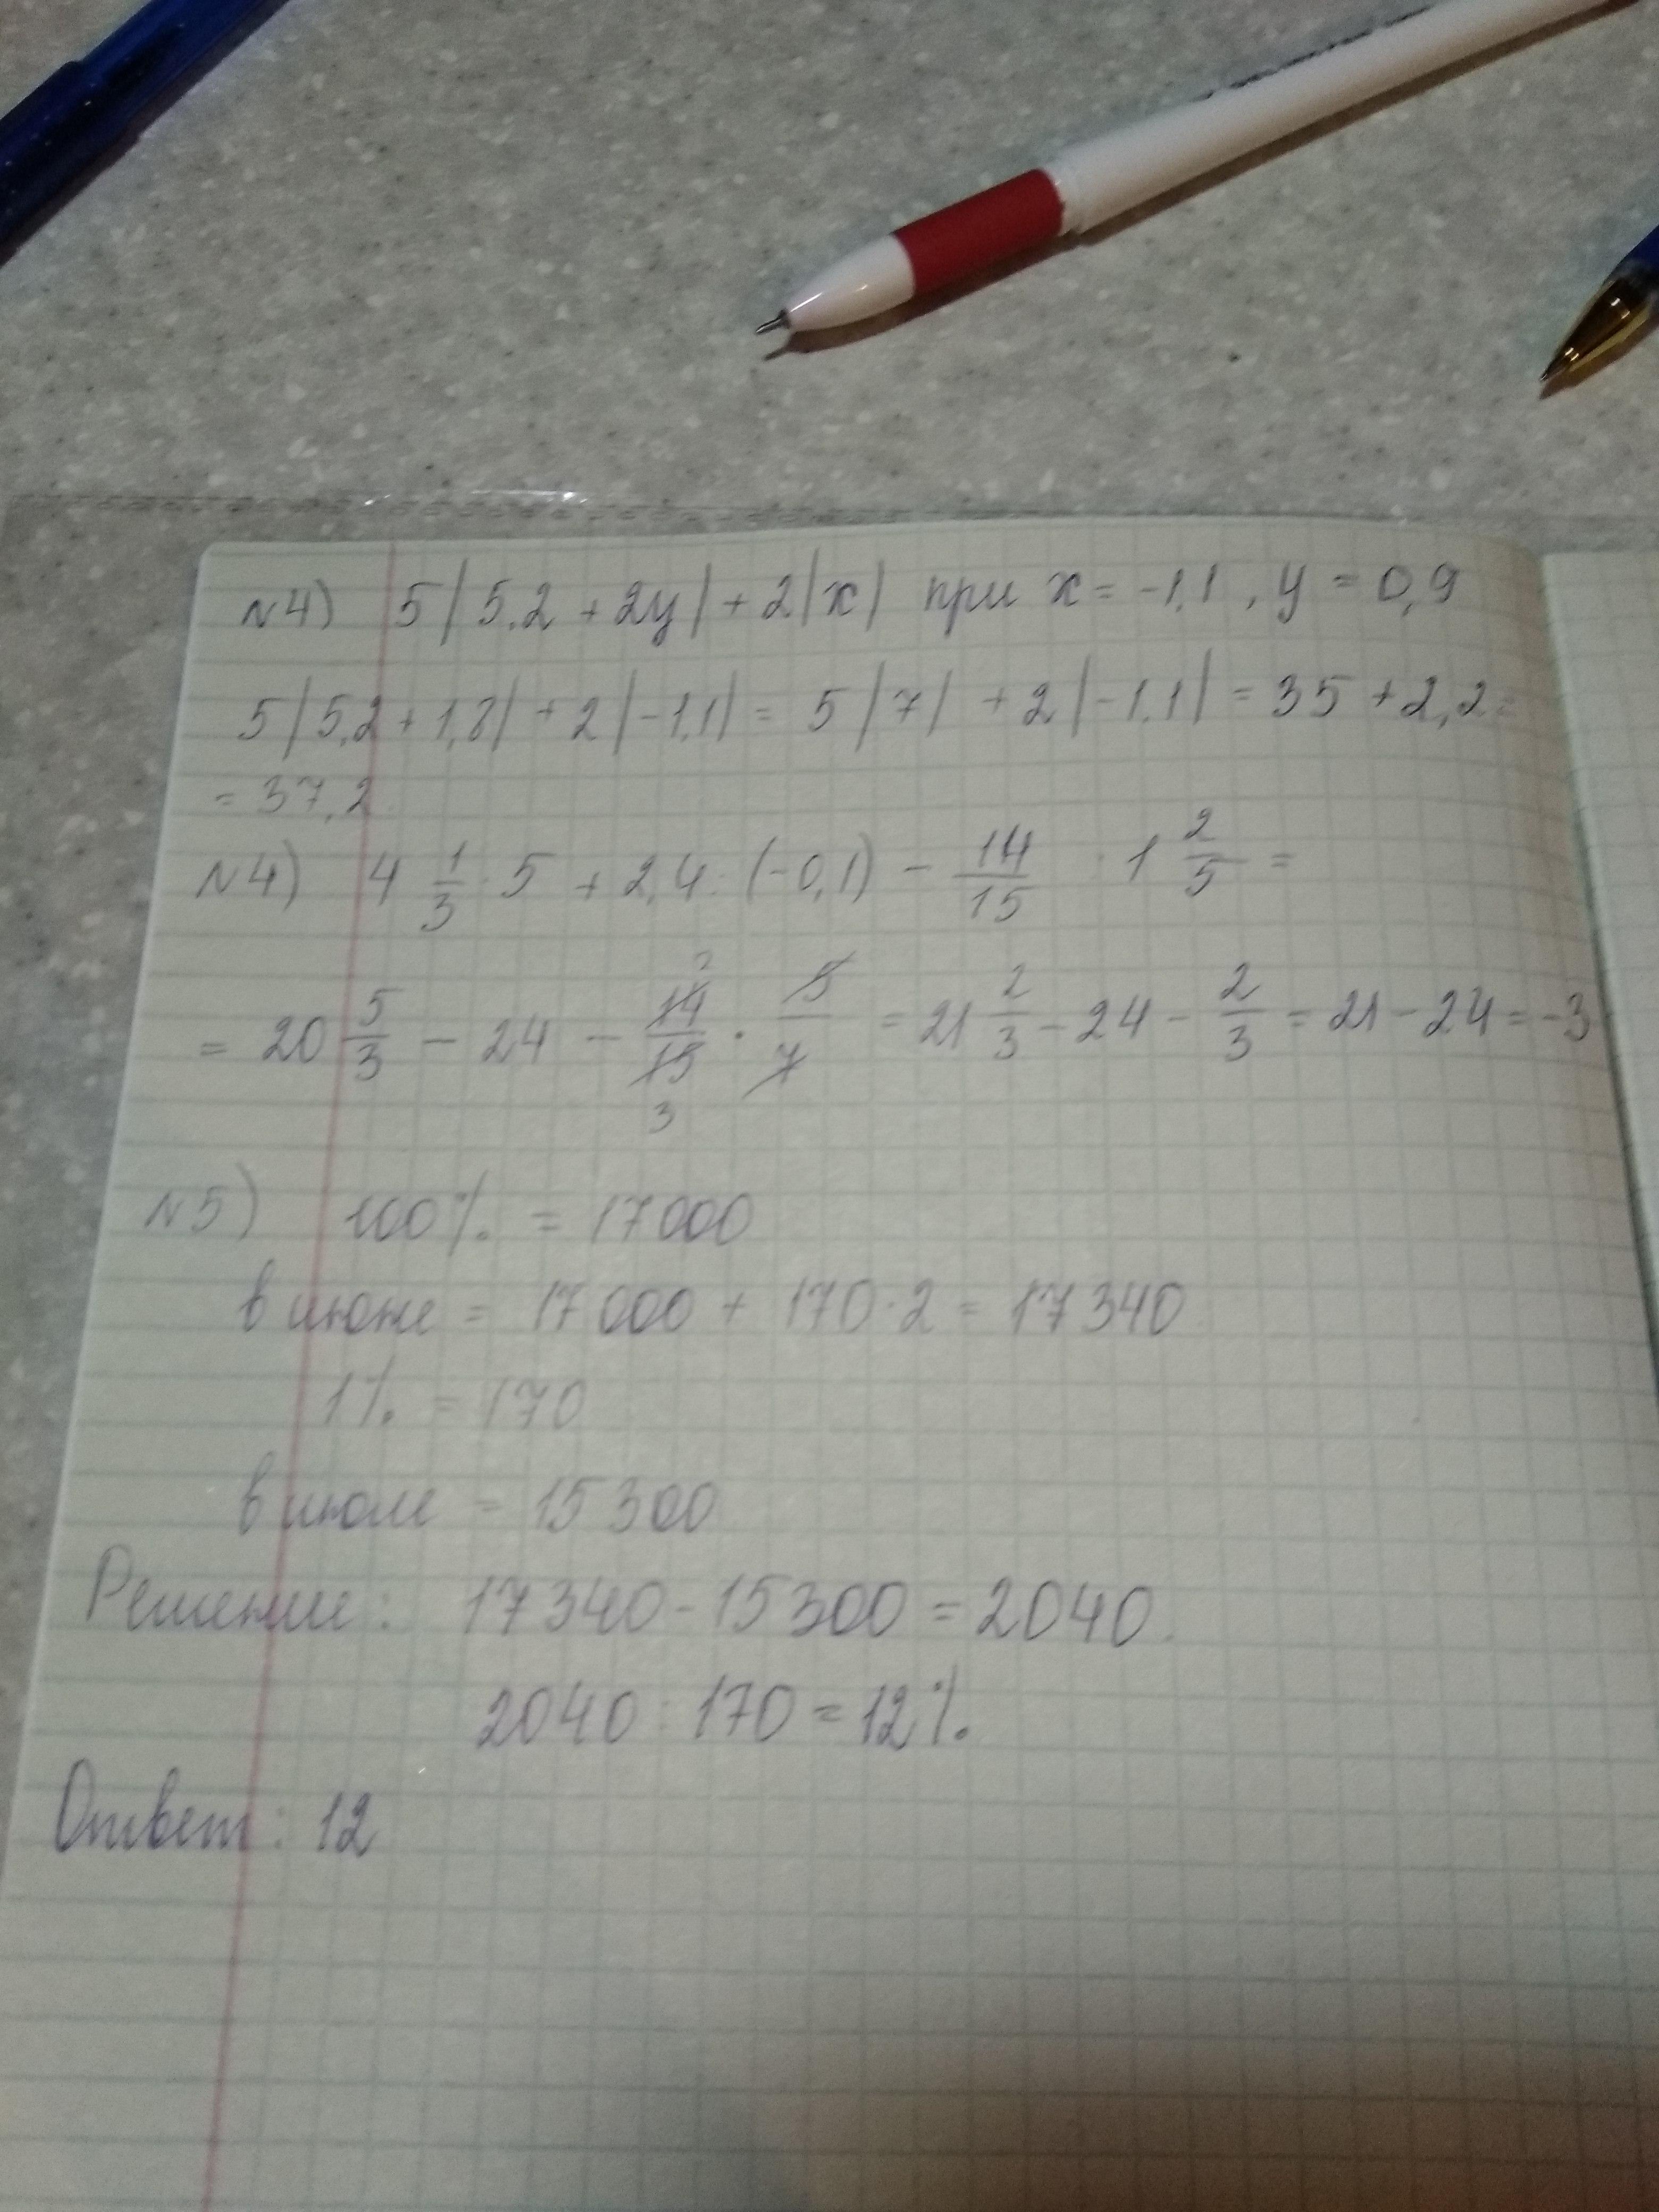 №4) 5|5,2 + 2y| + 2|x| при x = -1,1, y = 0,9
5|5,2 + 1,8| + 2|-1,1| = 5|7| + 2|-1,1| = 35 + 2,2 =
= 37,2
№4) 4 1/3 · 5 + 2,4 : (-0,1) - 14/15 : 1 2/5 =
= 20 5/3 - 24 - 14/15 · 5/7 = 21 2/3 - 24 - 2/3 = 21 - 24 = -3
№5) 100% = 17000
в июне = 17000 + 170·2 = 17340
1% = 170
в июле = 15300
Решение: 17340 - 15300 = 2040.
2040 : 170 = 12%.
Ответ: 12